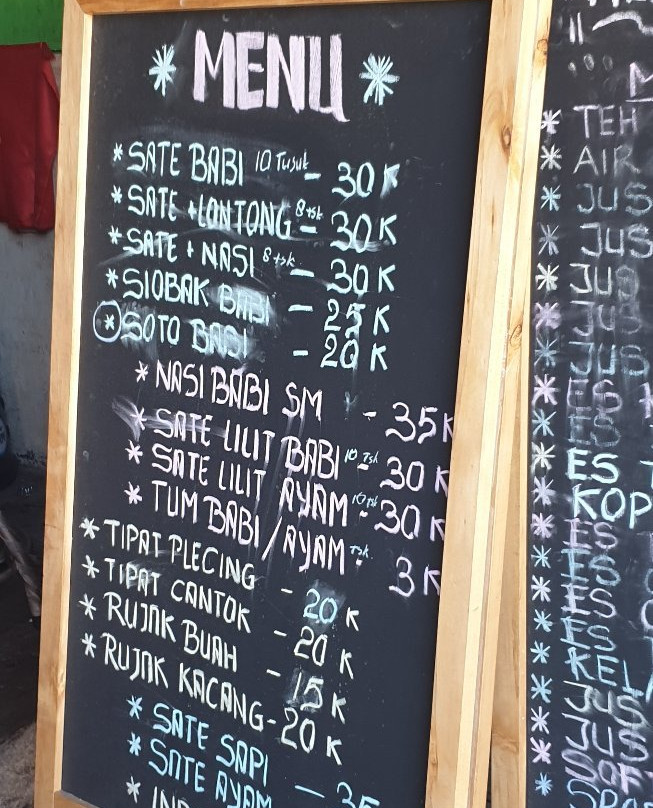 * MENU *
* SATE BABI 10 Tusuk - 30 K
* SATE + LONTONG 8 tsk - 30 K
* SATE + NASI 8 tsk - 30 K
* SIOBAK BABI - 25 K
* SOTO BABI - 20 K
* NASI BABI SM - 35 K
* SATE LILIT BABI 10 Tsk - 30 K
* SATE LILIT AYAM 10 tsk - 30 K
* TUM BABI / AYAM Tsk - 3 K
* TIPAT PLECING - 20 K
* TIPAT CANTOK - 20 K
* RUJAK BUAH - 15 K
* RUJAK KACANG - 20 K
* SATE SAPI - 35
* SATE AYAM
*
* TEH
* AIR
* JUS
* JUS
* JUS
* JUS
* JUS
* ES
* ES
* ES
* KOP
* ES
* ES
* ES
* ES
* KEL
* JUS
* JUS
* SOF
*